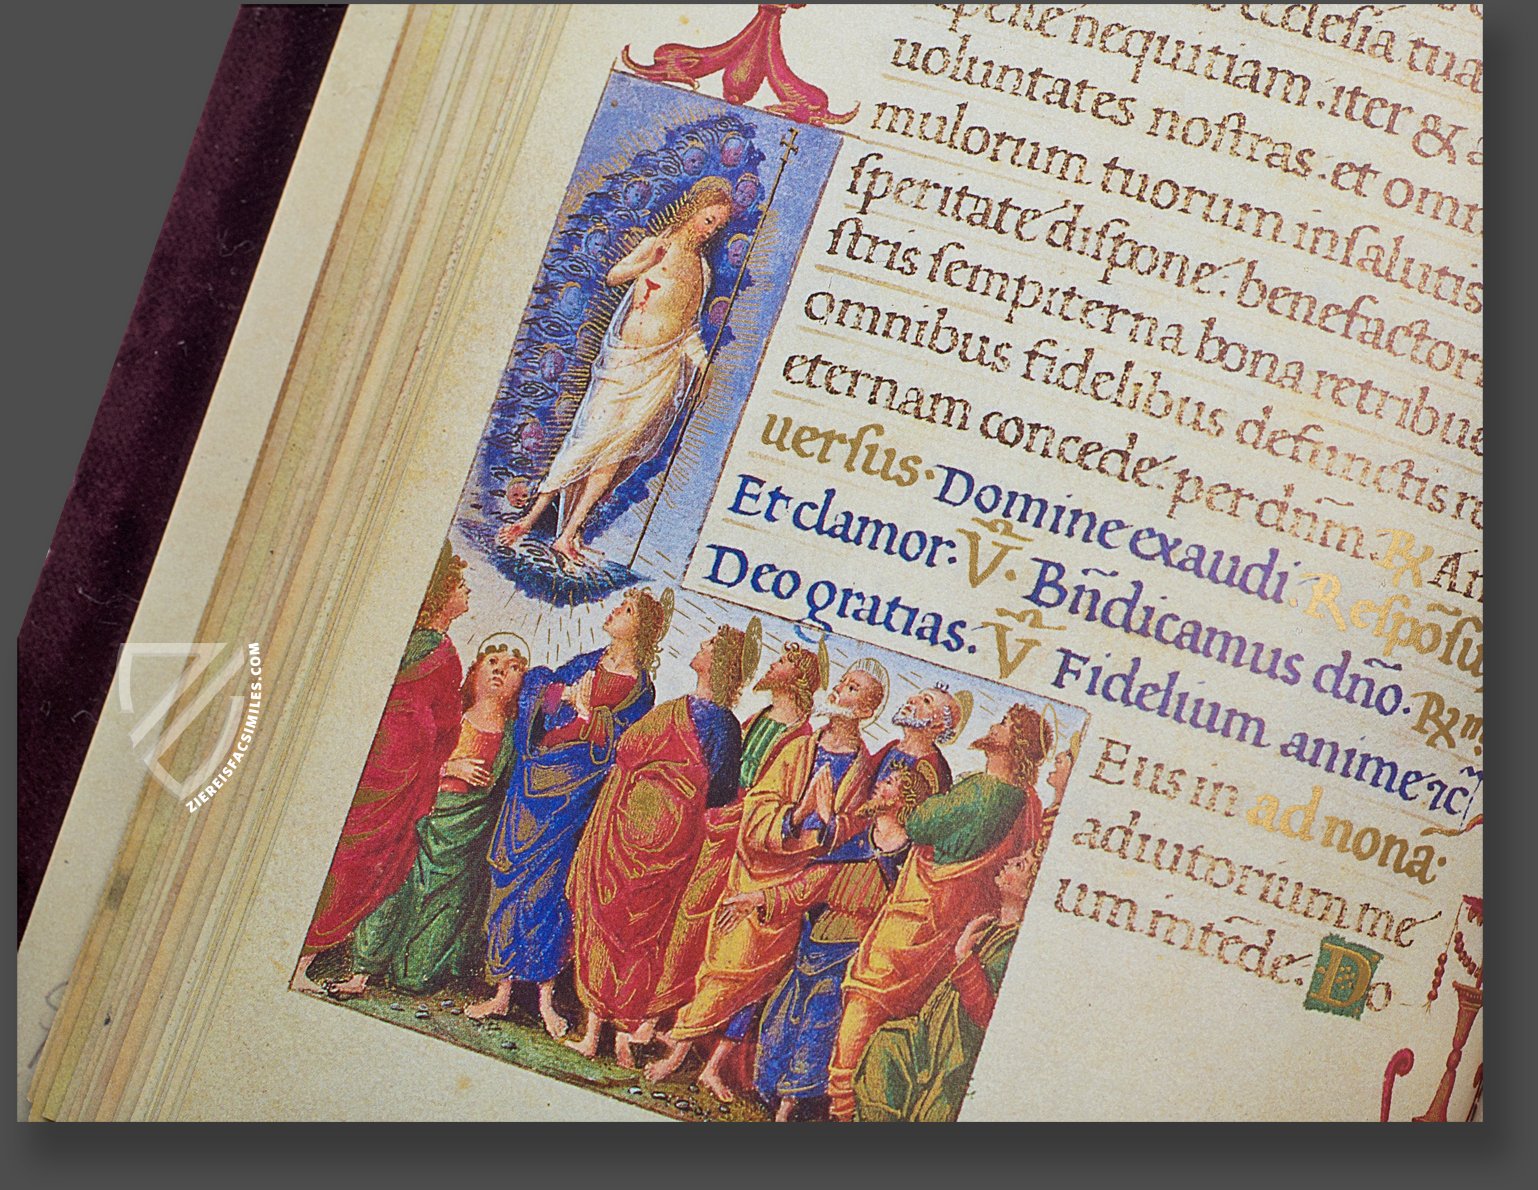 ecclesia tua
nequitiam. iter & a
uoluntates nostras. et omn
mulorum tuorum in salutis
speritate dispone. benefactori
stris sempiterna bona retribue
omnibus fidelibus defunctis re
eternam concede. per dñm. ℞ Am
uersus. Domine exaudi. Respõsu
Et clamor. V̄. Bñdicamus dño. ℞
Deo gratias. V̄ Fidelium anime
Eus in ad nona.
adiutorium me
um intẽde. Do
ZIEREISFACSIMILES.COM